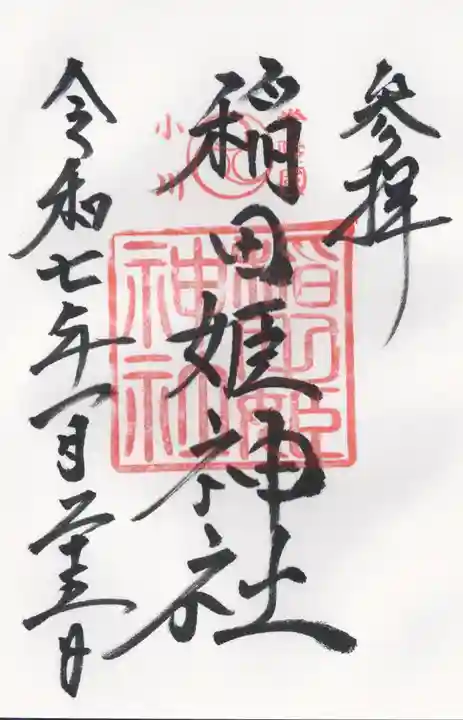 参拝
常陸國
小川
稲田姫神社
稲田姫神社
令和七年一月廿五日